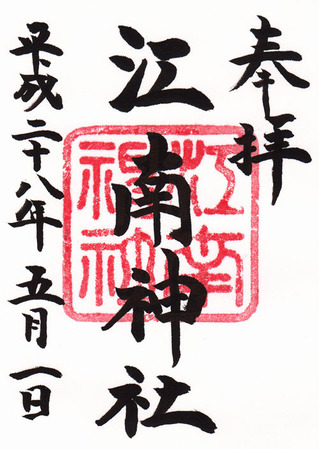 奉拝
江南神社
平成二十八年五月一日
江南
神社